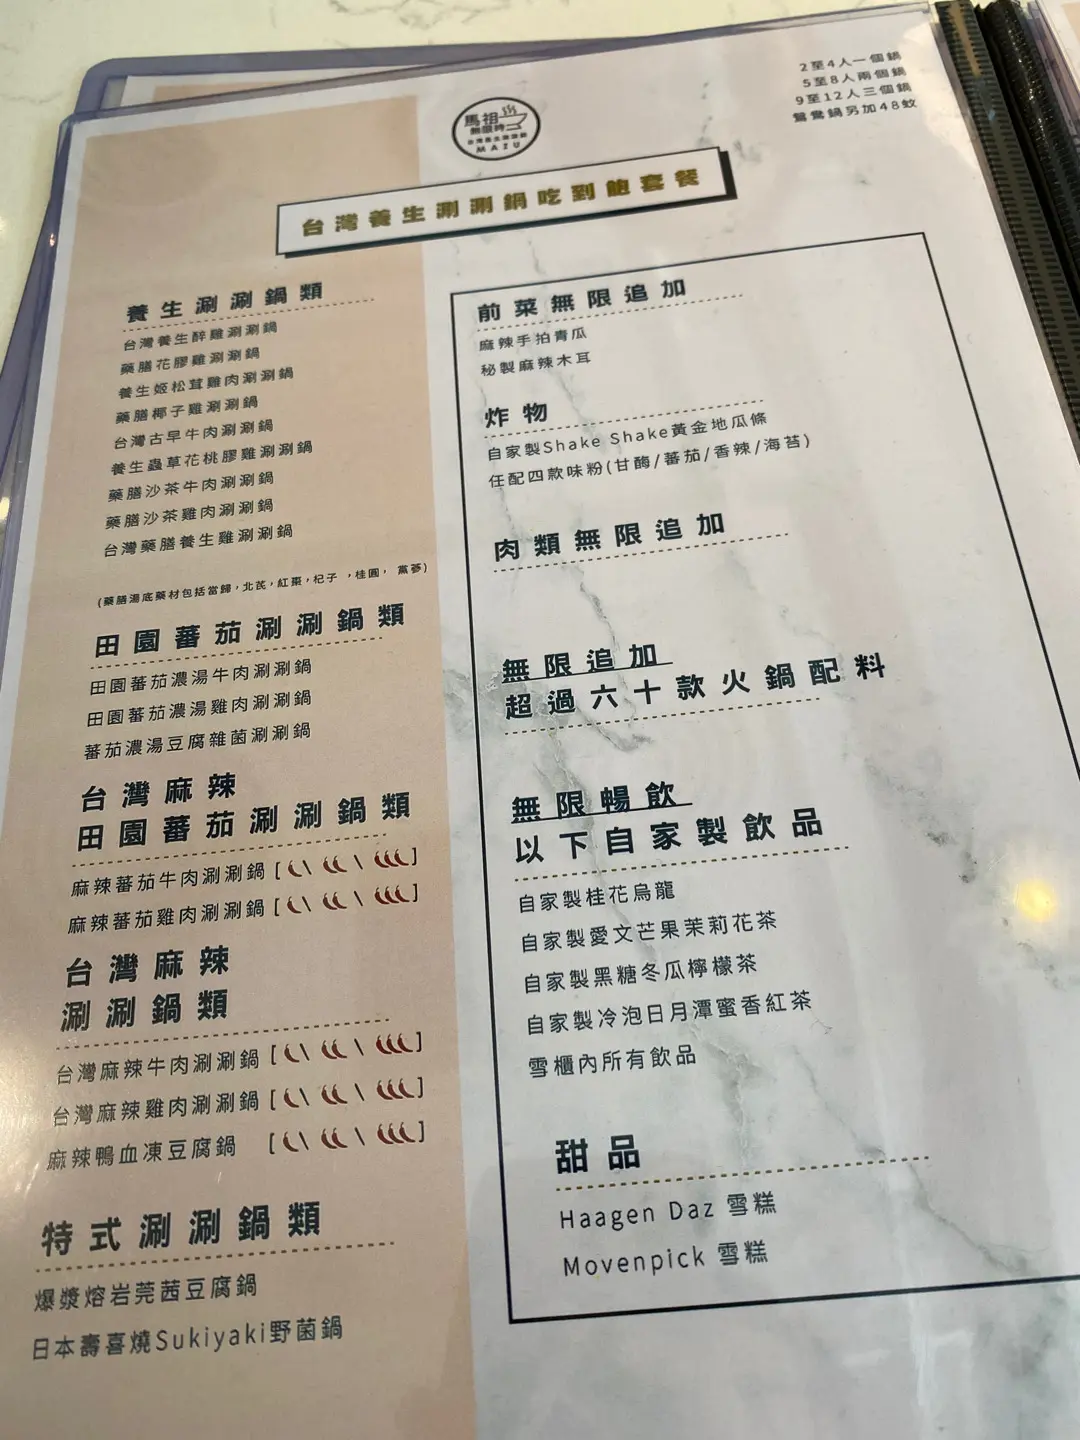 2至4人一個鍋
5至8人兩個鍋
9至12人三個鍋
鴛鴦鍋另加48蚊
馬祖
MAZU
台灣養生涮涮鍋吃到飽套餐
養生涮涮鍋類
台灣養生醉雞涮涮鍋
藥膳花膠雞涮涮鍋
養生姬松茸雞肉涮涮鍋
藥膳椰子雞涮涮鍋
台灣古早牛肉涮涮鍋
養生蟲草花桃膠雞涮涮鍋
藥膳沙茶牛肉涮涮鍋
藥膳沙茶雞肉涮涮鍋
台灣藥膳養生雞涮涮鍋
(藥膳湯底藥材包括當歸，北芪，紅棗，杞子 ，桂圓， 黨蔘)
田園蕃茄涮涮鍋類
田園蕃茄濃湯牛肉涮涮鍋
田園蕃茄濃湯雞肉涮涮鍋
蕃茄濃湯豆腐雜菌涮涮鍋
台灣麻辣
田園蕃茄涮涮鍋類
麻辣蕃茄牛肉涮涮鍋 [ \ \ ]
麻辣蕃茄雞肉涮涮鍋 [ \ \ ]
台灣麻辣
涮涮鍋類
台灣麻辣牛肉涮涮鍋 [ \ \ ]
台灣麻辣雞肉涮涮鍋 [ \ \ ]
麻辣鴨血凍豆腐鍋 [ \ \ ]
特式涮涮鍋類
爆漿熔岩莞茜豆腐鍋
日本壽喜燒Sukiyaki野菌鍋
前菜無限追加
麻辣手拍青瓜
秘製麻辣木耳
炸物
自家製Shake Shake黃金地瓜條
任配四款味粉(甘酶/蕃茄/香辣/海苔)
肉類無限追加
無限追加
超過六十款火鍋配料
無限暢飲
以下自家製飲品
自家製桂花烏龍
自家製愛文芒果茉莉花茶
自家製黑糖冬瓜檸檬茶
自家製冷泡日月潭蜜香紅茶
雪櫃內所有飲品
甜品
Haagen Daz 雪糕
Movenpick 雪糕